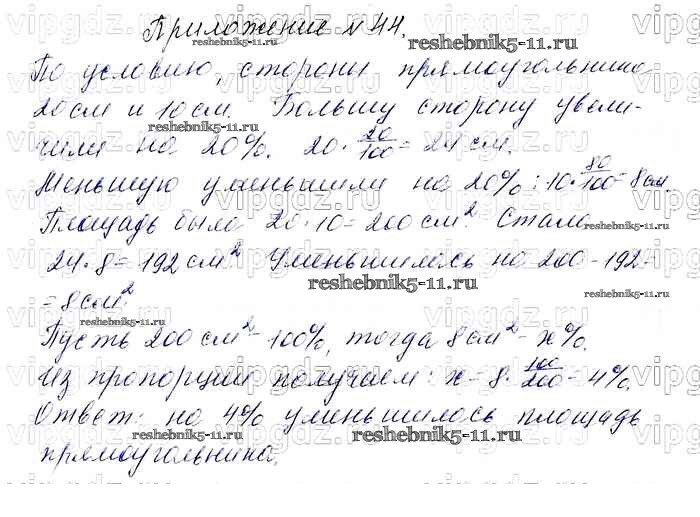 Приложение №44.
По условию, стороны прямоугольника
20 см и 10 см. Большу сторону увели-
чили на 20%. 20 · 20/100 = 24 см.
Меньшую уменьшили на 20%: 10 · 80/100 = 8 см.
Площадь была 20 · 10 = 200 см². Стала
24 · 8 = 192 см². Уменьшилось на 200 - 192 =
= 8 см².
Пусть 200 см² - 100%, тогда 8 см² - x%.
Из пропорции получаем: x = 8 · 100/200 = 4%.
Ответ: на 4% уменьшилось площадь
прямоугольника.
vipgdz.ru
reshebnik5-11.ru